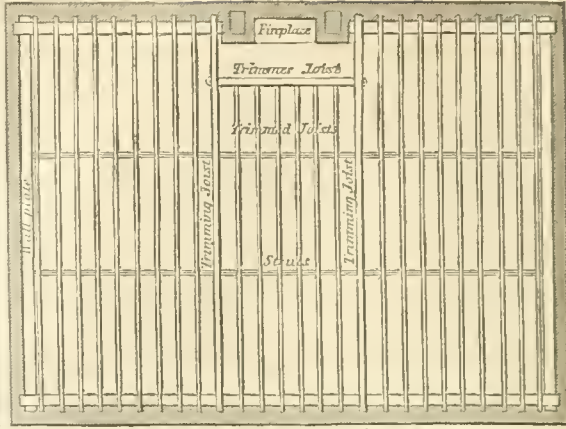 Fireplace
Trimmer Joist
Trimmed Joists
Wall plate
Trimming Joist
Trimming Joist
Struts